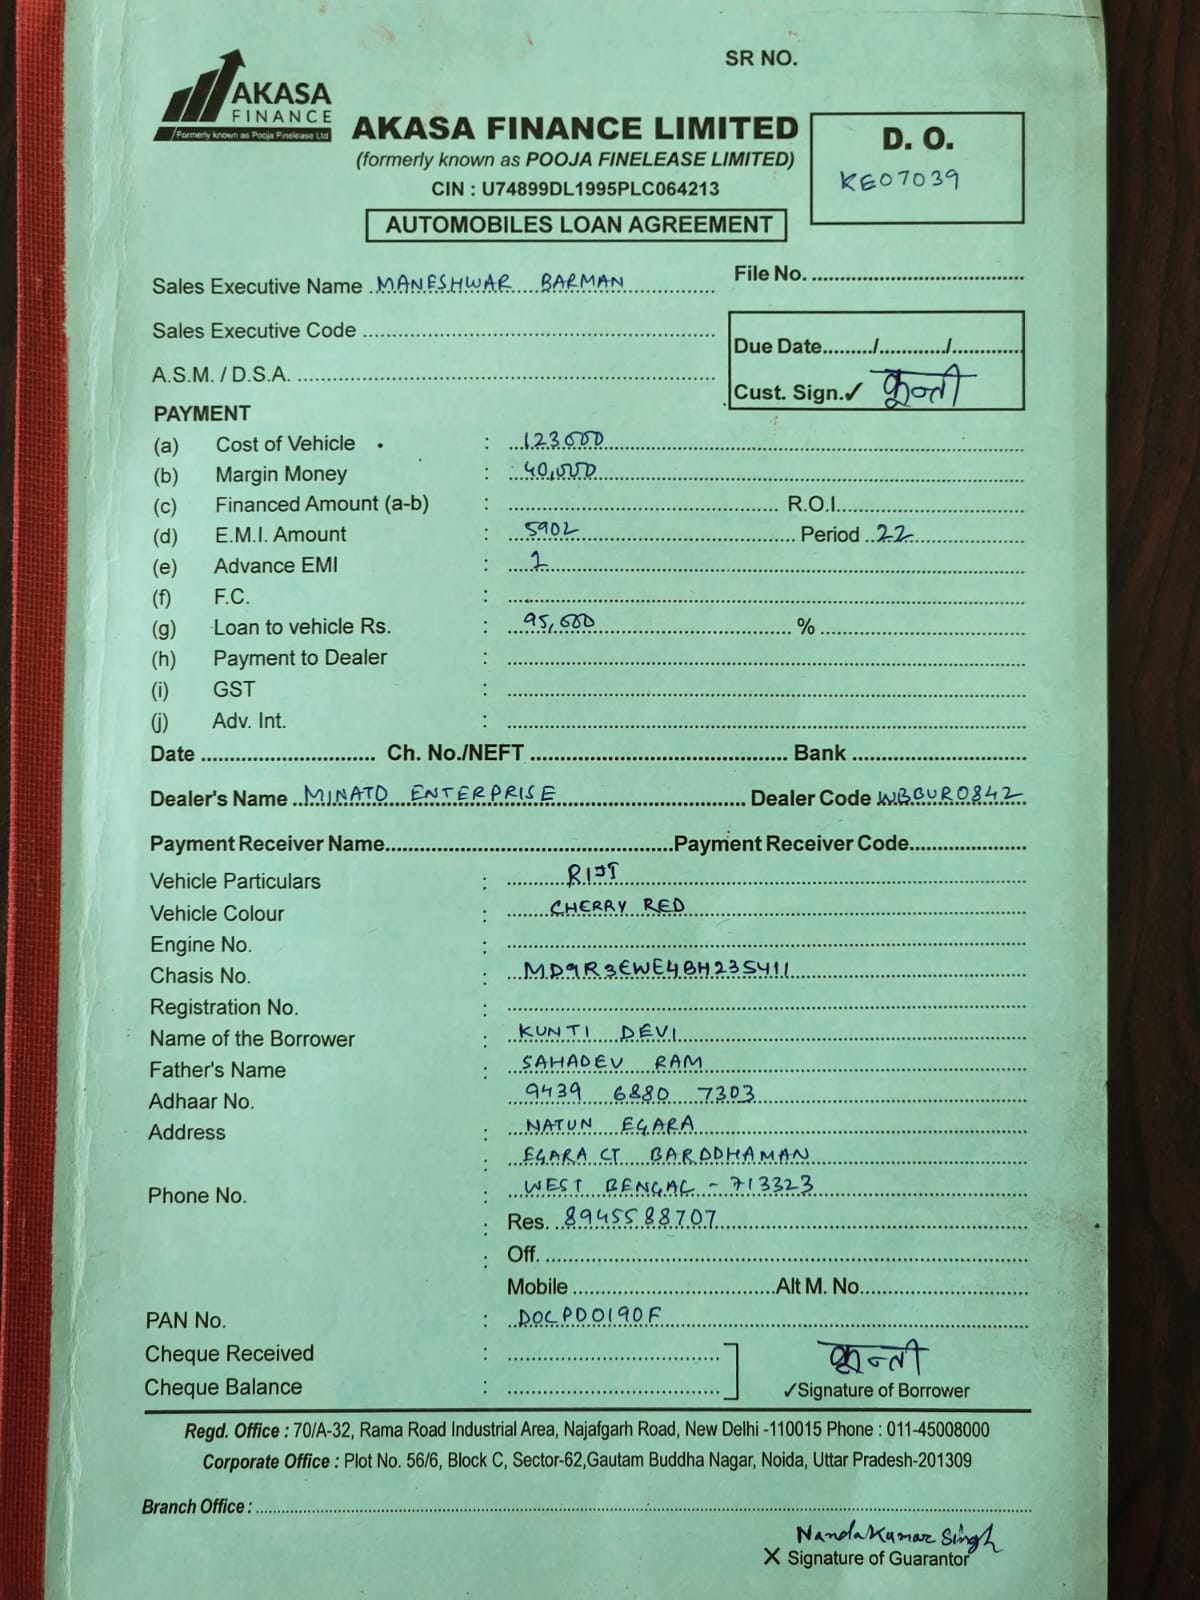 SR NO.
AKASA
FINANCE
Formerly known as Pooja Finelease Ltd
AKASA FINANCE LIMITED
(formerly known as POOJA FINELEASE LIMITED)
CIN : U74899DL1995PLC064213
AUTOMOBILES LOAN AGREEMENT
D. O.
KE07039
Sales Executive Name MANESHWAR BARMAN
File No.
Sales Executive Code
A.S.M. / D.S.A.
Due Date......../.........../............
Cust. Sign.✓ कुन्ती
PAYMENT
(a) Cost of Vehicle : 123000
(b) Margin Money : 40,000
(c) Financed Amount (a-b) : R.O.I.
(d) E.M.I. Amount : 5902 Period 22
(e) Advance EMI : 1
(f) F.C. :
(g) Loan to vehicle Rs. : 95,000 %
(h) Payment to Dealer :
(i) GST :
(j) Adv. Int. :
Date Ch. No./NEFT Bank
Dealer's Name MINATO ENTERPRISE Dealer Code WBBUR0842
Payment Receiver Name Payment Receiver Code
Vehicle Particulars :
Vehicle Colour : CHERRY RED
Engine No. :
Chasis No. : MD9R3EWE4BH235411
Registration No. :
Name of the Borrower : KUNTI DEVI
Father's Name : SAHADEV RAM
Adhaar No. 9439 6880 7303
Address : NATUN EGARA
: EGARA CT BARDDHAMAN
Phone No. : WEST BENGAL - 713323
: Res. 8945588707
: Off.
Mobile Alt M. No.
PAN No. : DOCPD0190F
Cheque Received :
Cheque Balance :
कुन्ती
✓Signature of Borrower
Regd. Office : 70/A-32, Rama Road Industrial Area, Najafgarh Road, New Delhi -110015 Phone : 011-45008000
Corporate Office : Plot No. 56/6, Block C, Sector-62,Gautam Buddha Nagar, Noida, Uttar Pradesh-201309
Branch Office :
Nandakumar Singh
X Signature of Guarantor